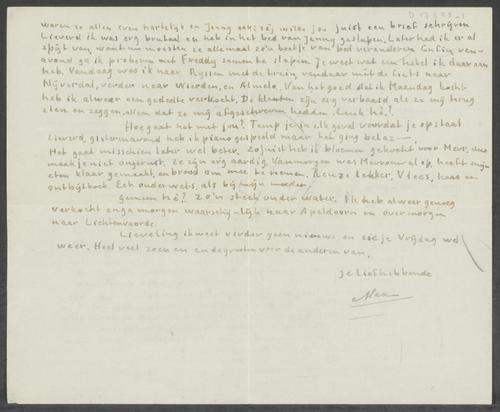 waren ze allen even hartelijk en Jenny ook; zij wilde jou juist een brief schrijven
Lieverd ik was erg brutaal en heb in het bed van Jenny geslapen. Later had ik er al
spijt van, want nu moesten ze allemaal zo'n beetje van bed veranderen Enfin van-
avond ga ik proberen met Freddy samen te slapen. Je weet wat een hekel ik daar aan
heb. Vandaag was ik naar Ryssen met de trein vandaar met de fiets naar
Nijverdal, verder naar Wierden, en Almelo. Van het goed dat ik Maandag kocht
heb ik alweer een gedeelte verkocht. De klanten zijn erg verbaasd als ze mij terug
zien en zeggen, allen dat ze mij afgeschreven hadden. Leuk hè!
Hoe gaat het met jou? Temp je in elk geval voordat je opstaat
Lieverd, gisteravond heb ik piano gespeeld maar het ging belaz –
Het gaat misschien later wel beter. Zojuist heb ik bloemen gekocht voor Mevr, dus
maak je niet ongerust. Ze zijn erg aardig. Vanmorgen was Mevrouw al op, heeft mijn
eten klaar gemaakt, en brood om mee te nemen. Reuze lekker, Vlees, kaas en
ontbijtkoek. Echt ouderwets, als bij mijn moeder
Gemeen hè? Zo'n steek onder water. Ik heb alweer genoeg
verkocht en ga morgen waarschijnlijk naar Apeldoorn en overmorgen
naar Lichtenvoorde.
Lieveling ik weet verder geen nieuws en zie je Vrijdag wel
weer. Heel veel zoen en en de groeten voor de anderen van,
je Liefhebbende
Max